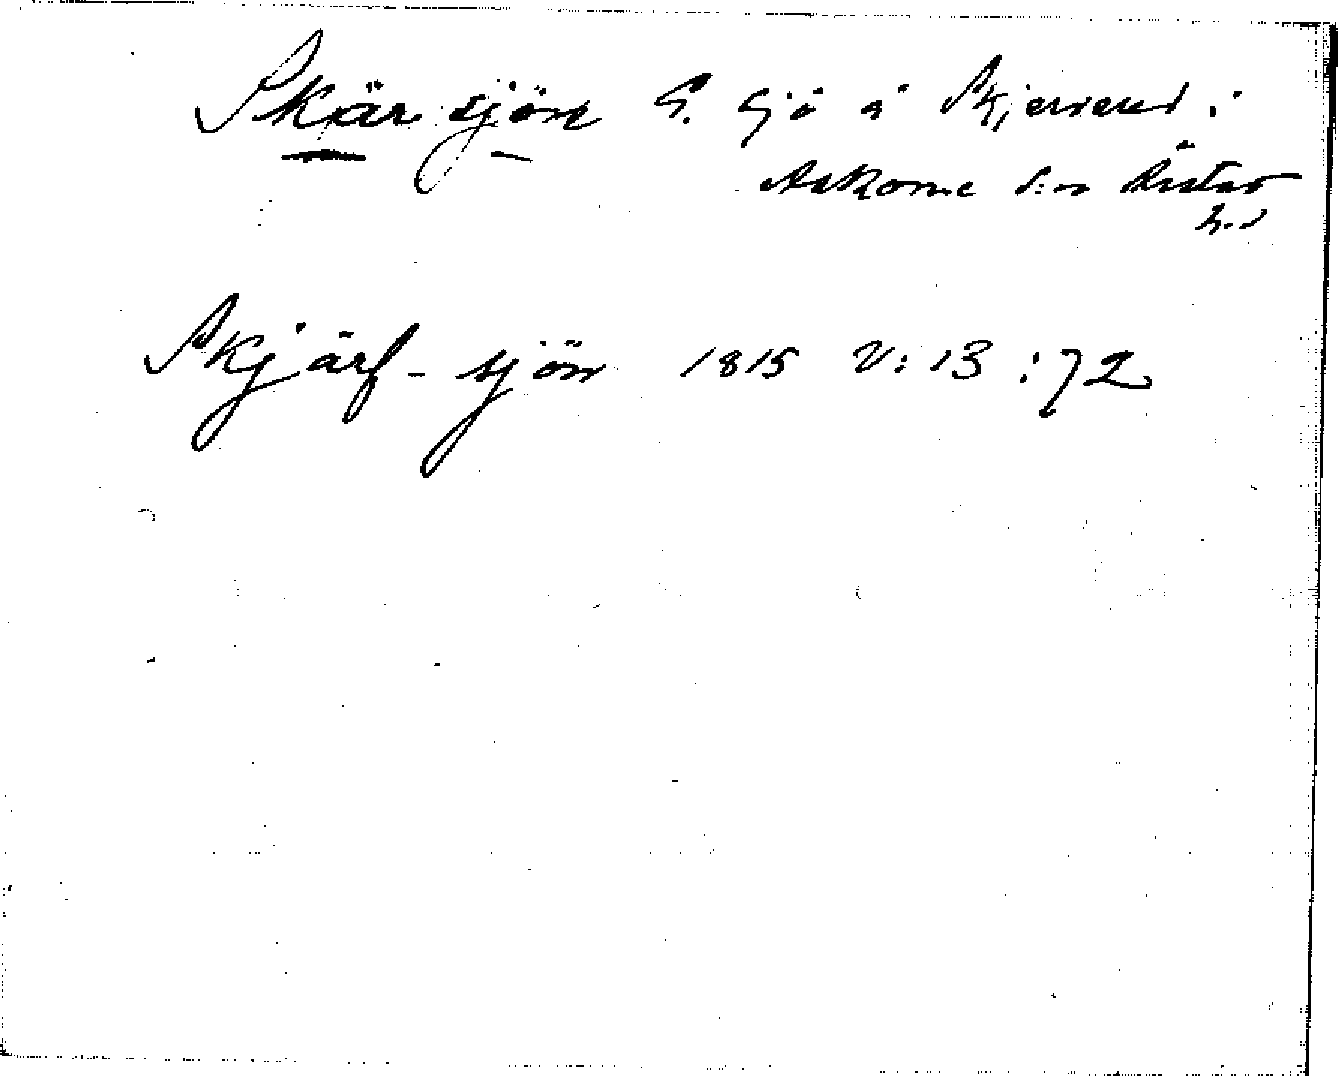 Skär sjön S. Sjö å Skjererud i
Askome s:n Årstad
h.d
Skjärf-sjön 1815 V: 13 :72